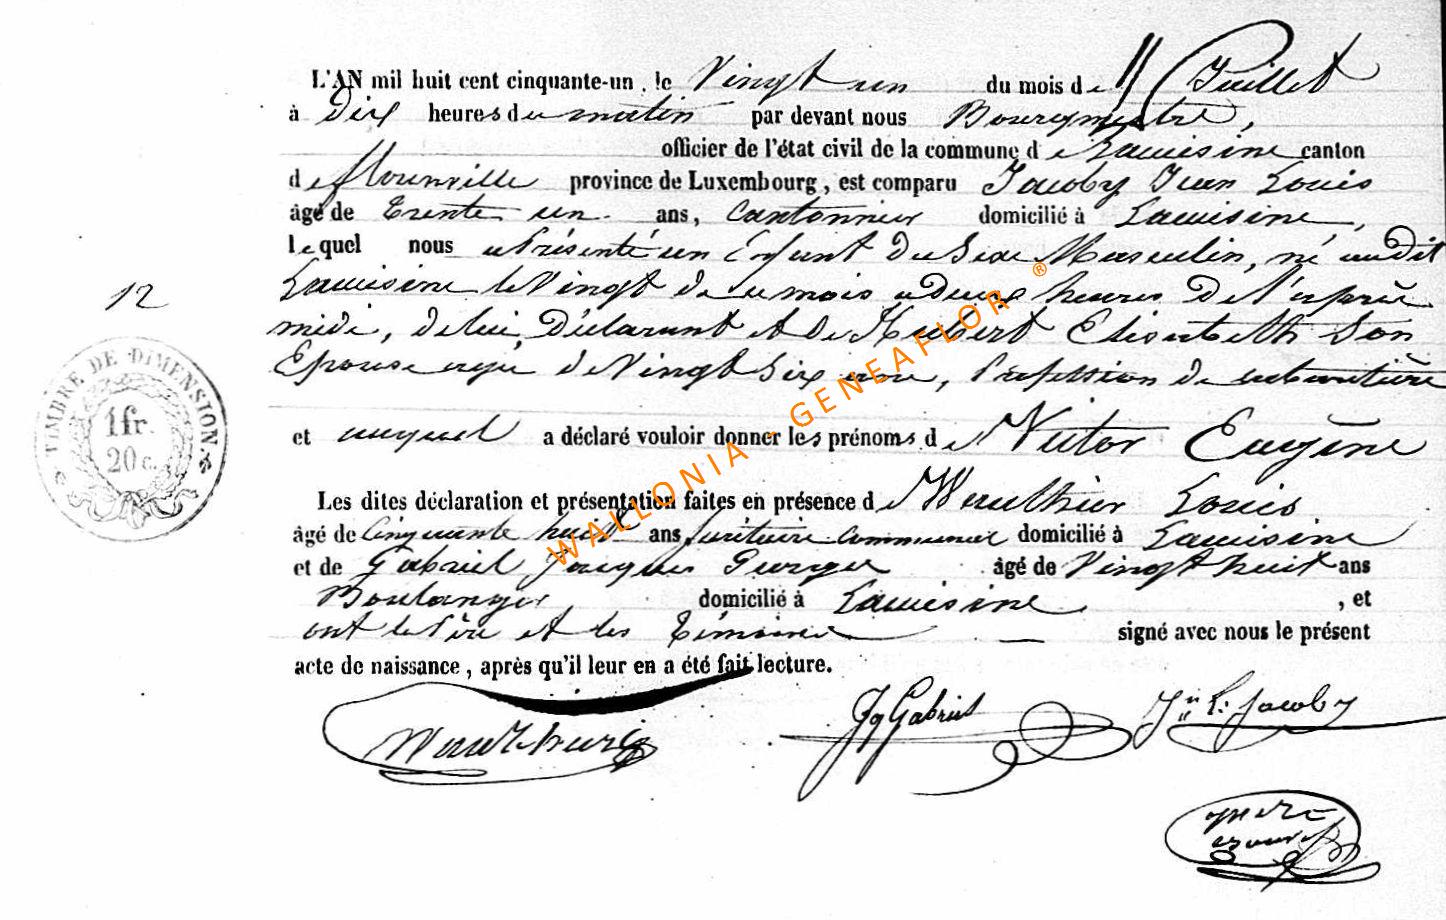 L'AN mil huit cent cinquante-un, le Vingt un du mois de Juillet
à Dix heures du matin par devant nous Bourgmestre,
officier de l'état civil de la commune de Lacuisine canton
de florenville province de Luxembourg, est comparu Jacoby Jean Louis
âgé de trente un ans, Cantonnier domicilié à Lacuisine,
lequel nous a Présenté un Enfant du Sexe Masculin, né audit
Lacuisine le Vingt de ce mois a deux heures De l'après
midi, de lui Déclarant et de Hubert Elisabeth Son
Epouse agée de Vingt Six ans, Profession de
12
TIMBRE DE DIMENSION
1 fr.
20 c.
et auquel a déclaré vouloir donner les prénoms de Victor Eugène
Les dites déclaration et présentation faites en présence de Wauthier Louis
âgé de Cinquante huit ans Secrétaire Communal domicilié à Lacuisine
et de Gabriel Jacques âgé de Vingt huit ans
Boulanger, domicilié à Lacuisine, et
ont le Père et les témoins signé avec nous le présent
acte de naissance, après qu'il leur en a été fait lecture.
Jq Gabriel
Jn L. Jacoby
WALLONIA - GENEAFLOR ®